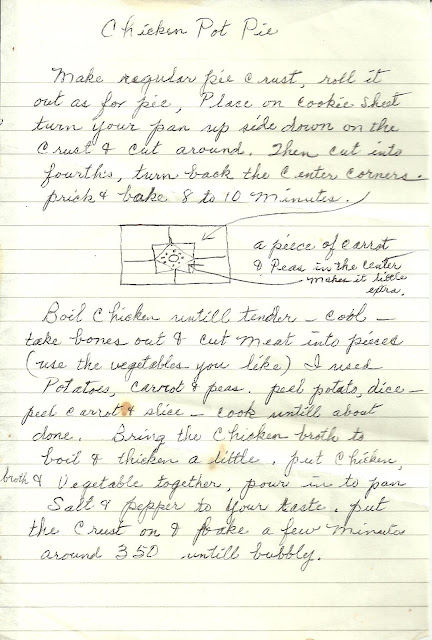 Chicken Pot Pie
Make regular pie crust, roll it
out as for pie, Place on cookie sheet
turn your pan up side down on the
crust & cut around. Then cut into
fourths, turn back the center corners.
prick & bake 8 to 10 minutes.
a piece of carrot
& Peas in the center
makes it little
extra.
Boil Chicken untill tender - cool -
take bones out & cut meat into pieces
(use the vegetables you like) I used
Potatoes, carrot & peas. peel potato, dice -
peel carrot & slice - cook untill about
done. Bring the Chicken broth to
boil & thicken a little. put Chicken,
broth & Vegetable together, pour in to pan
Salt & pepper to your taste. put
the crust on & bake a few minutes
around 350 untill bubbly.